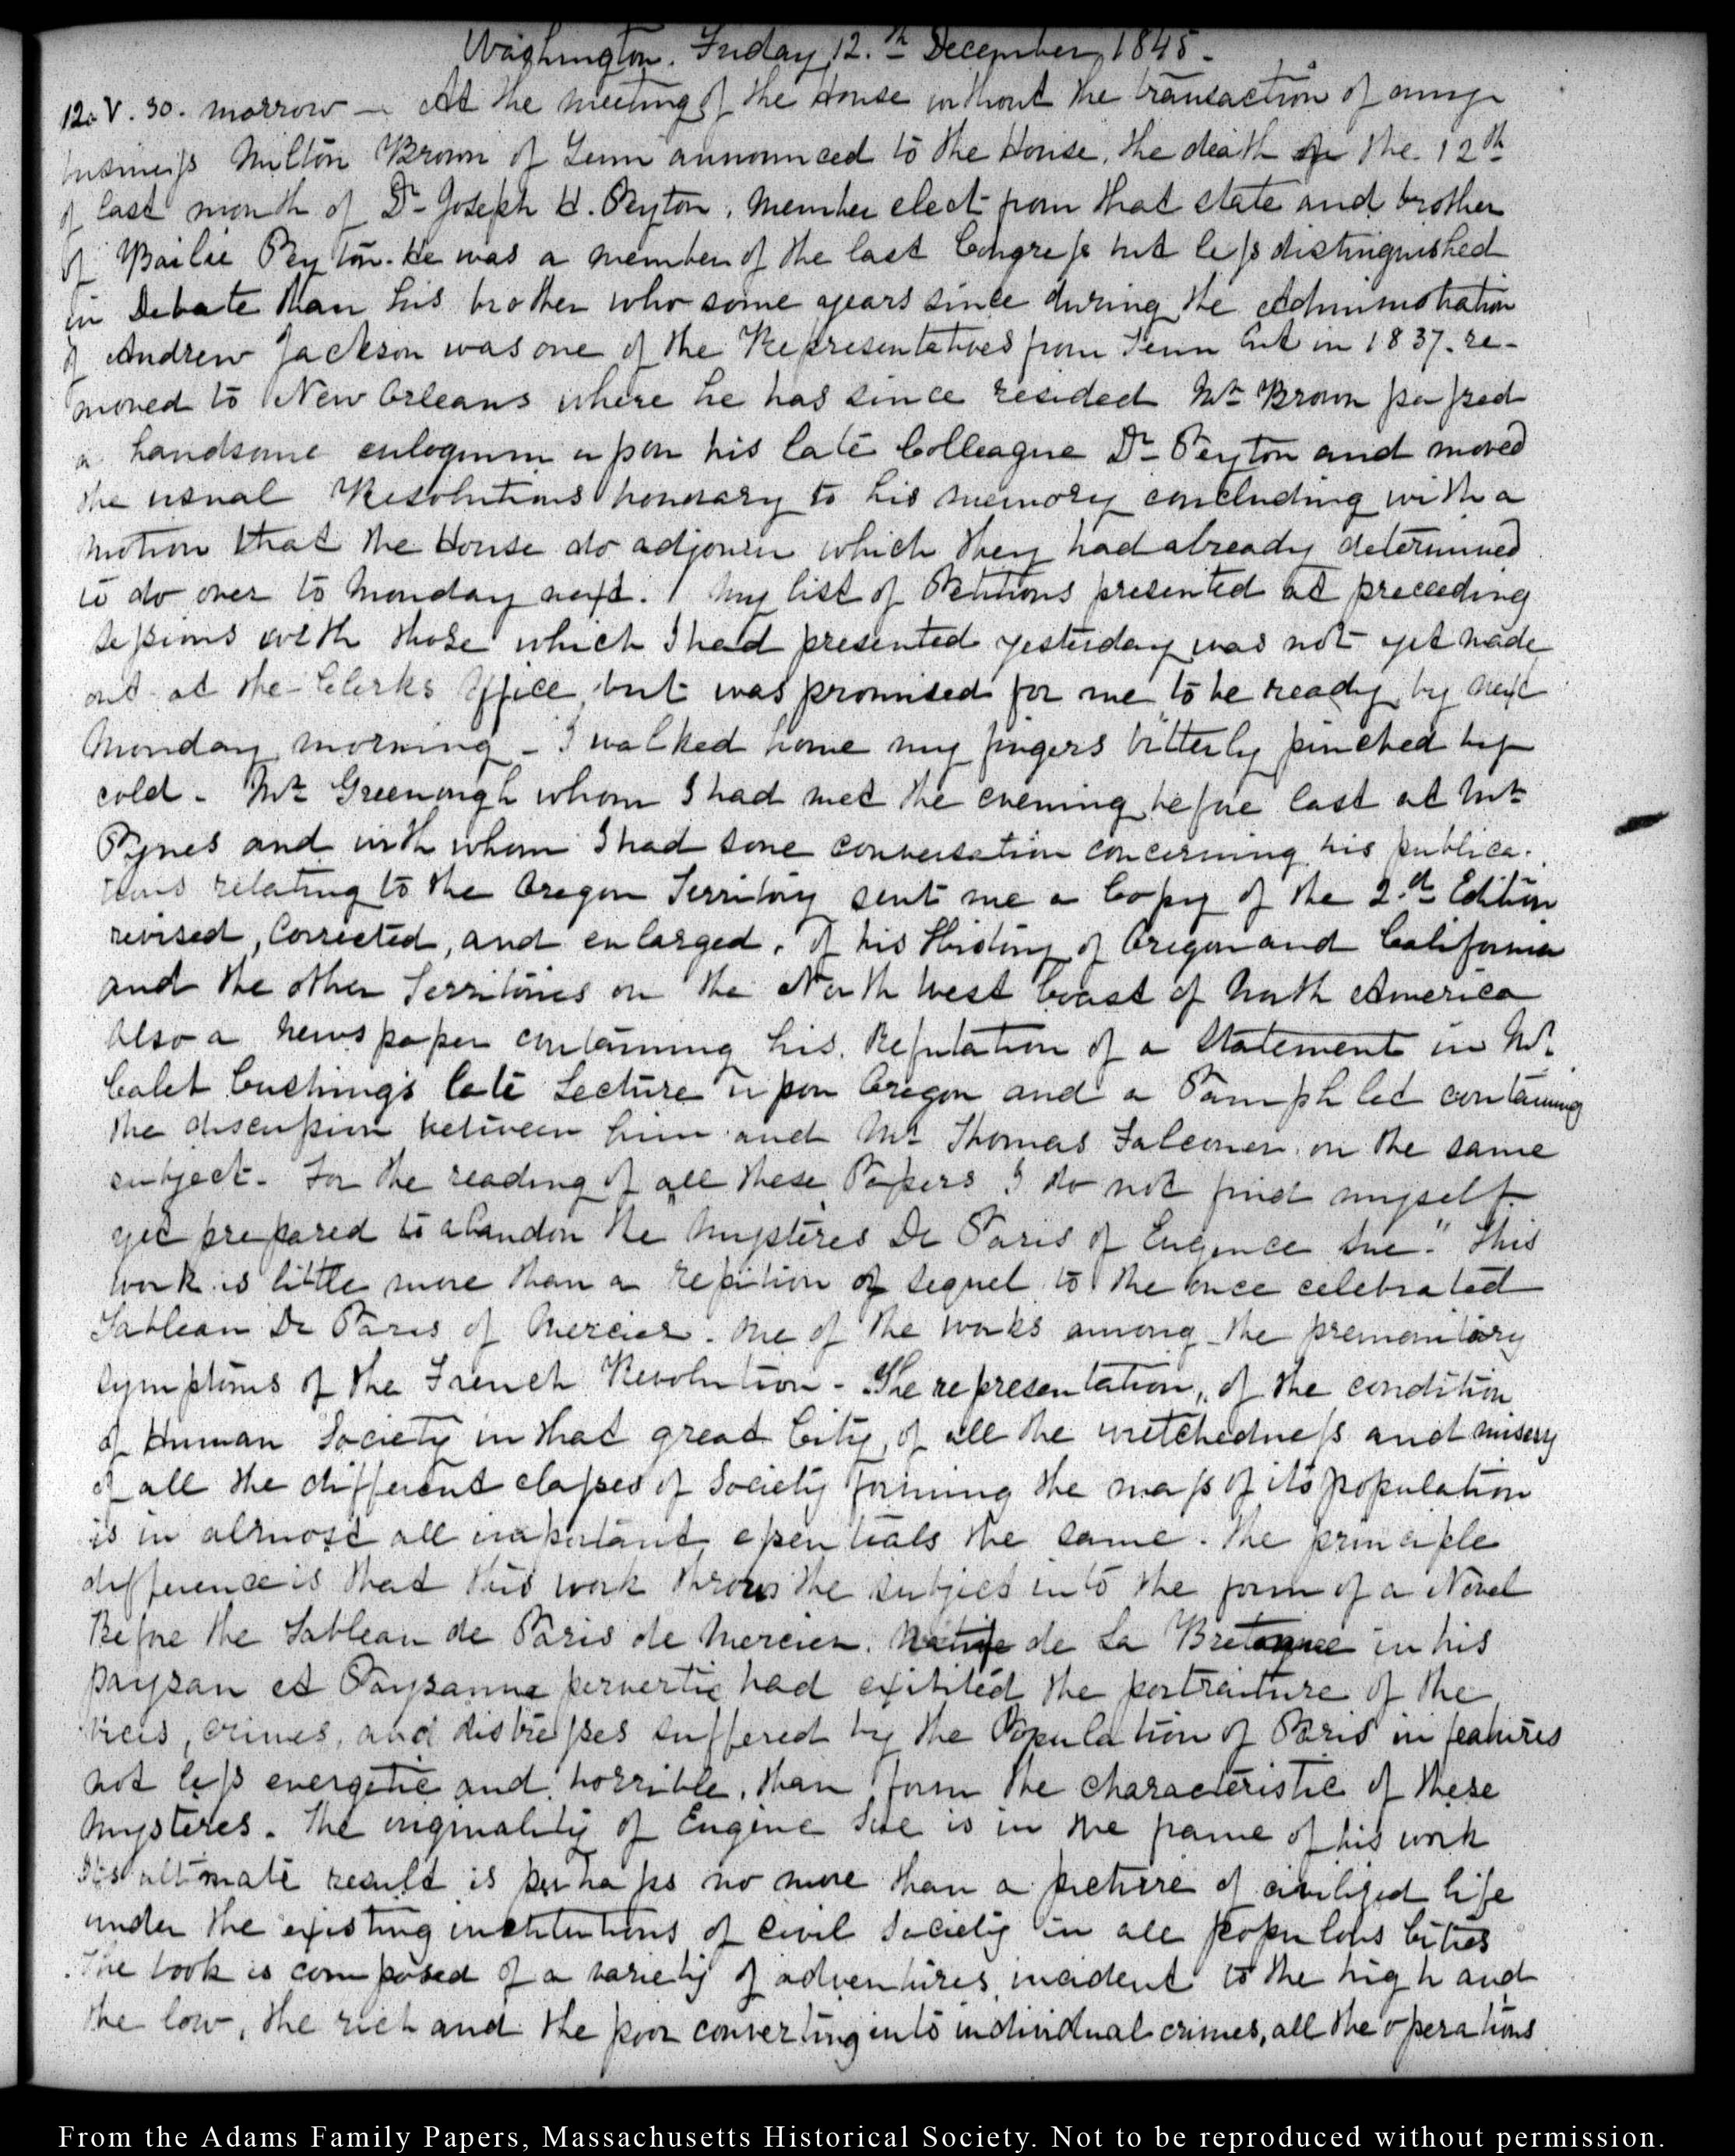 Washington. Friday 12.th December 1845.
12. V. 30. morrow — At the meeting of the House without the transaction of any
business Milton Brown of Tenn announced to the House, the death on the 12th
of last month of Dr Joseph H. Peyton, Member elect from that state and brother
of Bailie Peyton. He was a member of the last Congress but less distinguished
in Debate than his brother who some years since during the Administration
of Andrew Jackson was one of the Representatives from Tenn but in 1837. re-
moved to New Orleans where he has since resided Mr Brown passed
a handsome eulogium upon his late Colleague Dr Peyton and moved
the usual Resolutions honorary to his memory concluding with a
motion that the House do adjourn which they had already determined
to do over to Monday next. My list of Petitions presented at preceeding
sessions with those which I had presented yesterday was not yet made
out at the Clerks Office but was promised for me to be ready by next
Monday morning – I walked home my fingers bitterly pinched by
cold – Mr Greenough whom I had met the evening before last at Mr
Pynes and with whom I had some conversation concerning his publica-
tions relating to the Oregon Territory sent me a Copy of the 2.d Edition
revised, Corrected, and enlarged, of his History of Oregon and California
and the other Territories on the North West Coast of North America
Also a newspaper containing his Refutation of a Statement in Mr
Caleb Cushing's late Lecture upon Oregon and a Pamphlet containing
the discussion between him and Mr Thomas Falconer on the same
subject. For the reading of all these Papers I do not find myself
yet prepared to abandon the Mysteres De Paris of Eugence Sue." This
work is little more than a repition of sequel to the once celebrated
Tableau De Paris of Mercier. One of the works among the premonitory
symptoms of the French Revolution – The representation, of the condition
of Human Society in that great City, of all the wretchedness and misery
of all the different classes of Society forming the mass of its population
is in almost all important essentials the same. The principle
difference is that this work throws the subject into the form of a Novel
Before the Tableau de Paris de Mercier. de La Bretonne in his
paysan et Paysanne pervertie had exibited the portraiture of the
vices, crimes, and distresses suffered by the Population of Paris in features
not less energetic and horrible, than form the characteristic of these
Mysteres. The originality of Eugene Sue is in the frame of his work
Its ultimate result is perhaps no more than a picture of civilized life
under the existing institutions of civil Society in all populous Cities
The book is composed of a variety of adventures, incident to the high and
the low, the rich and the poor converting into individual crimes, all the operations
From the Adams Family Papers, Massachusetts Historical Society. Not to be reproduced without permission.